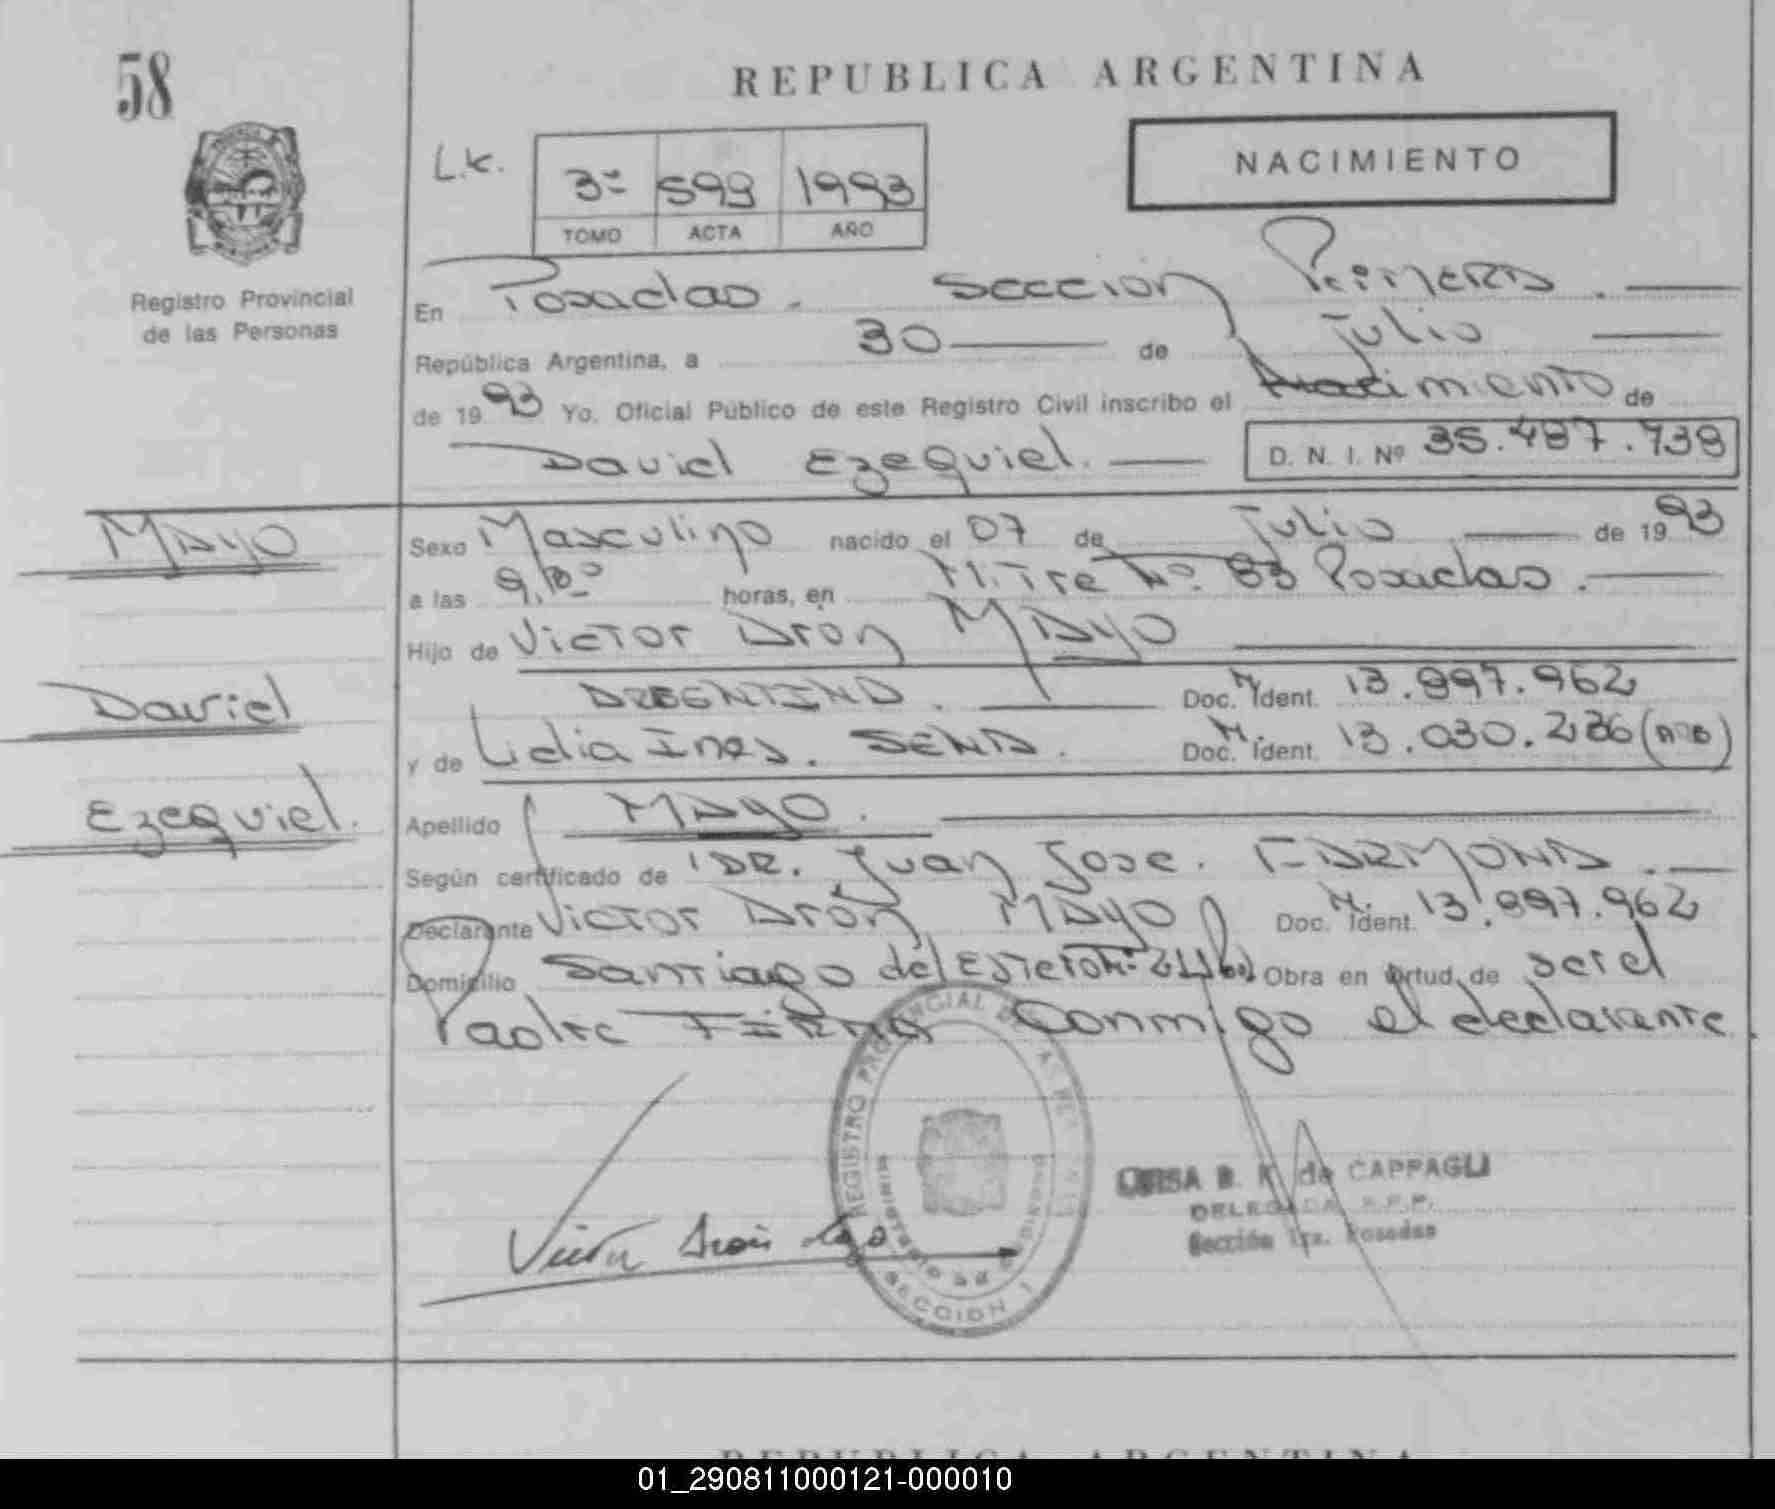 58
REPUBLICA ARGENTINA
L.K.
3º 599 1993
TOMO ACTA AÑO
NACIMIENTO
Registro Provincial
de las Personas
En Posadas. Sección Primera.
República Argentina, a 30 de Julio
de 1993 Yo. Oficial Público de este Registro Civil inscribo el Nacimiento de
David Ezequiel. D. N. I. Nº 35.487.739
MAYO
Sexo Masculino nacido el 07 de Julio de 1993
a las horas, en Mitre Nº 83 Posadas.
Hijo de Victor Aron MAYO
David
ARGENTINO. Doc. N. Ident. 13.897.962
y de Lidia Ines. SENA. Doc. N. Ident. 13.030.236 (ARG)
Ezequiel.
Apellido MAYO.
Según certificado de DR. Juan Jose. FARMONA.
Declarante Victor Aron MAYO Doc. N. Ident. 13.897.962
Domicilio Santiago del Estero Nº Obra en virtud de ser el
Padre FIRMA Conmigo el declarante.
REGISTRO PROVINCIAL DE LAS PERSONAS
MINISTERIO DE GOBIERNO
SECCION 1
Victor Aron Mayo
de CAPPAGLI
DELEGADA R.P.P.
Sección 1ra. Posadas
REPUBLICA ARGENTINA
01_290811000121-000010